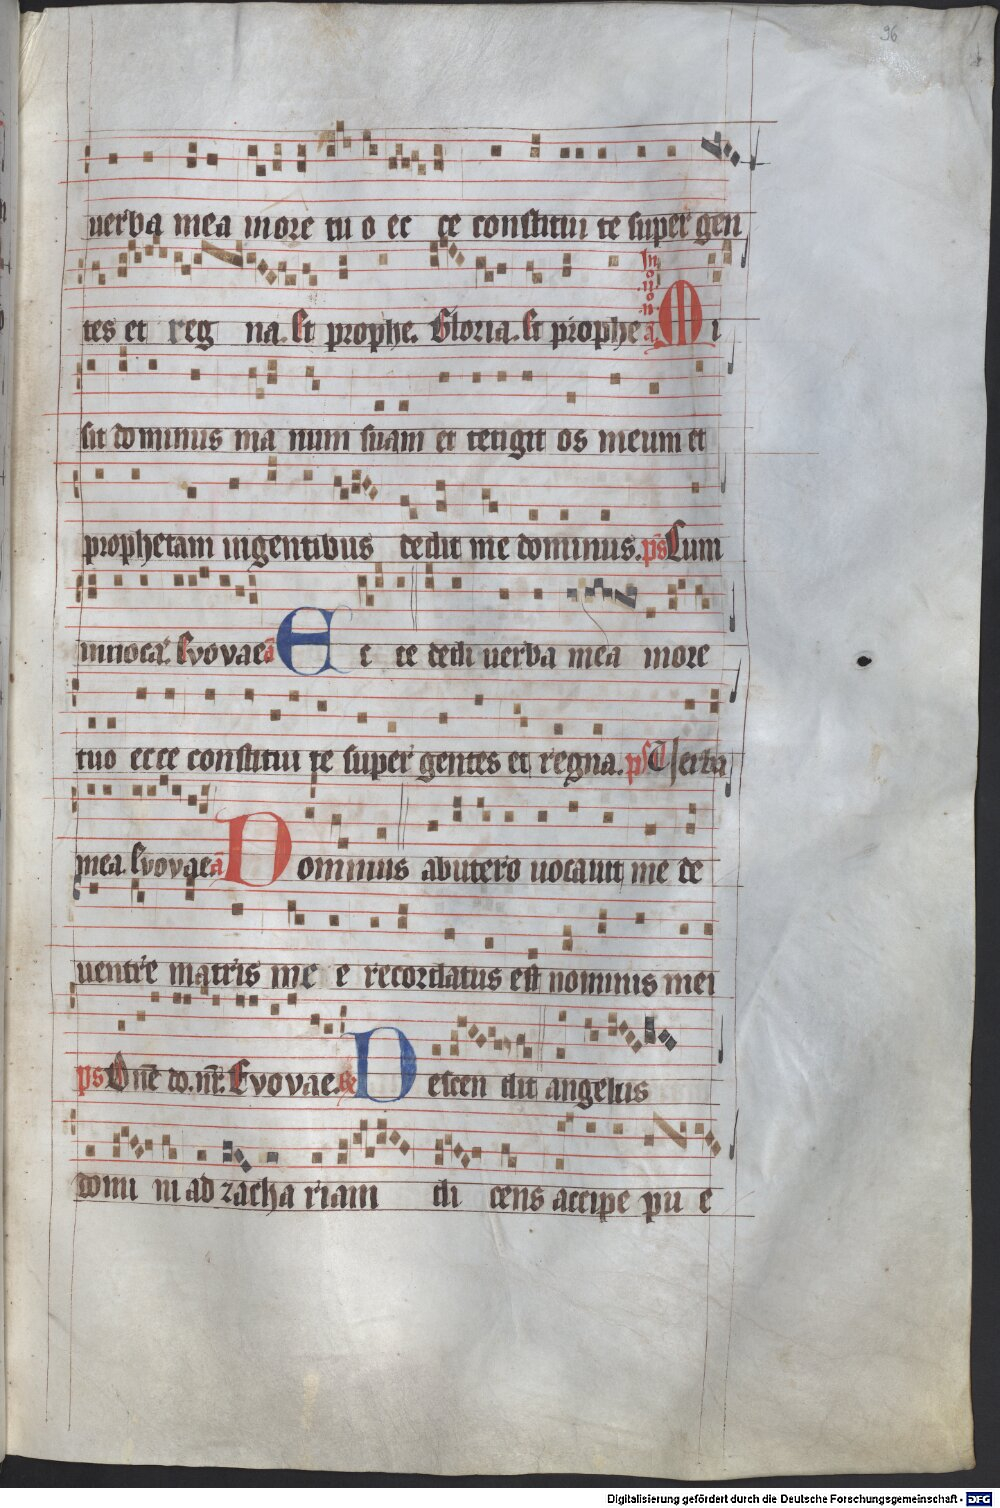 96
uerba mea in ore tu o ec ce constitui te super gen
tes et reg na. Et prophe. Gloria. Et prophe In .ij. o n a. M i
sit dominus ma num suam et tetigit os meum et
prophetam in gentibus dedit me dominus. ps Cum
inuocar. Evovae a E c ce dedi uerba mea in ore
tuo ecce constitui te super gentes et regna. ps Uerba
mea. Evovae a D ominus ab utero uocauit me de
uentre matris me e recordatus est nominis mei
ps Dne do. nr. Evovae. D escen dit angelus
domi ni ad zacha riam di cens accipe pu e
Digitalisierung gefördert durch die Deutsche Forschungsgemeinschaft - DFG